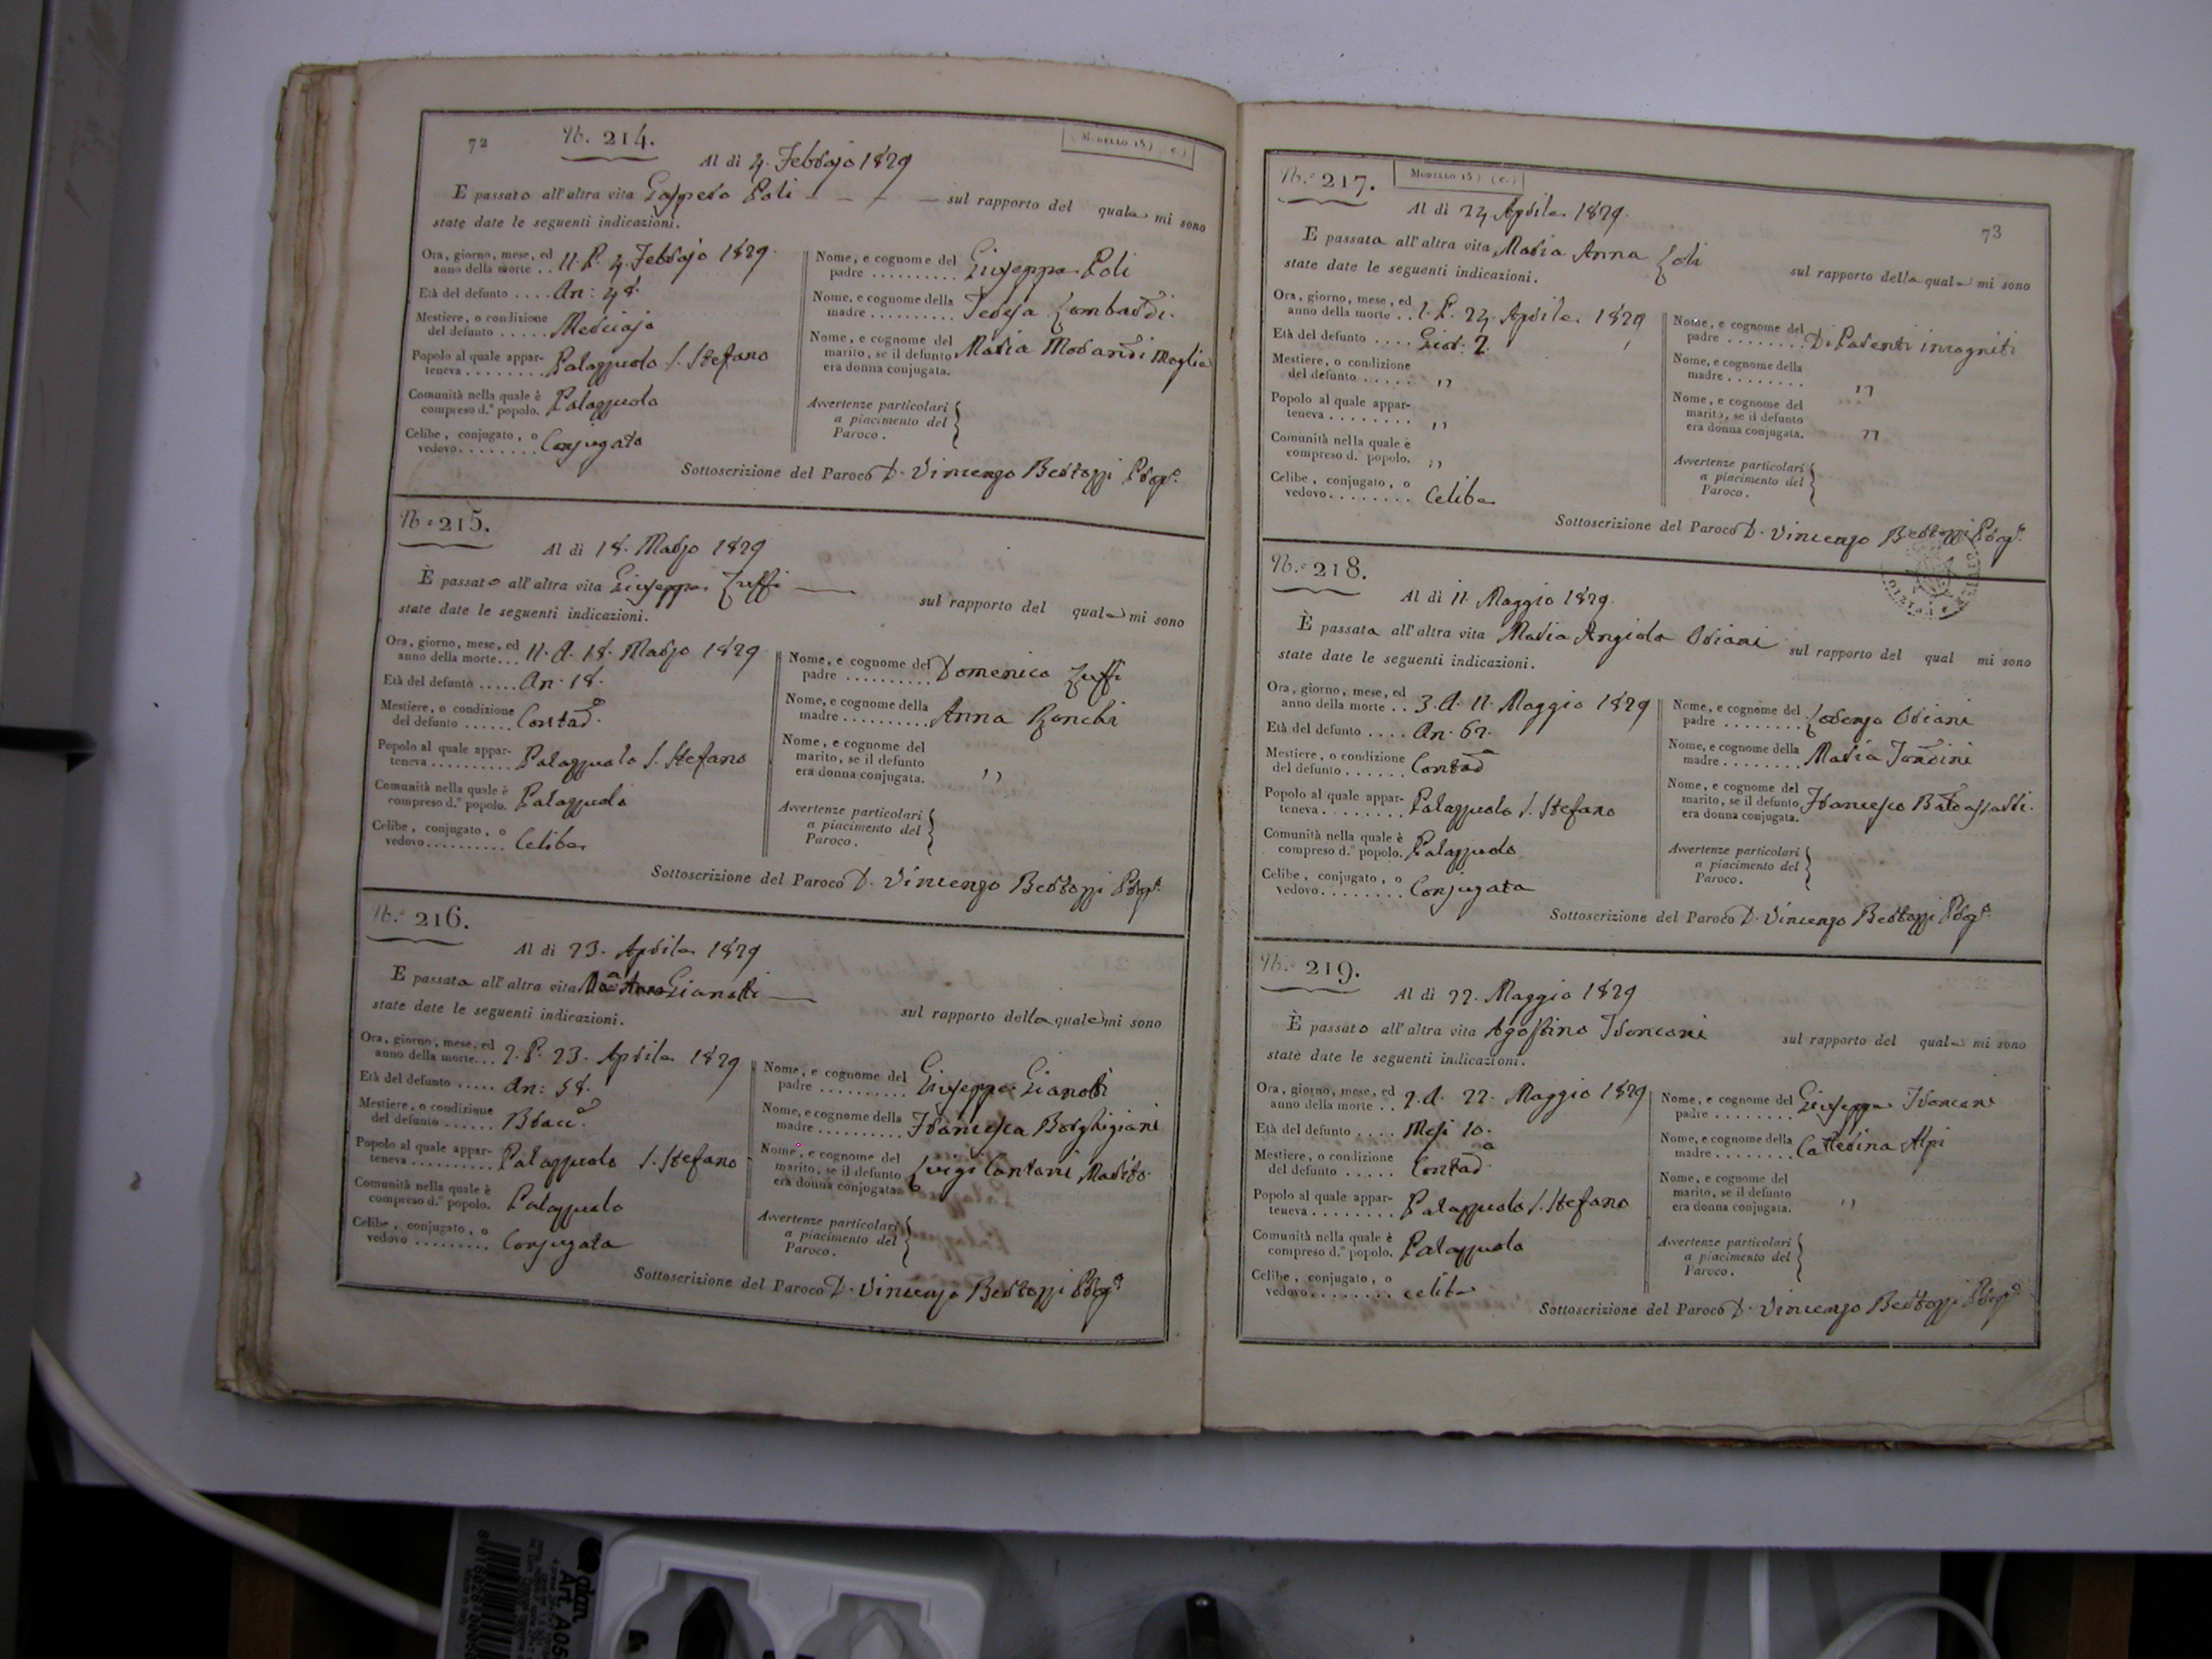 72
N. 214.
(Modello 15) (c.)
Al dì 4. Febbrajo 1829
È passato all'altra vita Gaspero Poli sul rapporto del quale mi sono
state date le seguenti indicazioni.
Ora, giorno, mese, ed
anno della morte .. 11. P. 4. Febbrajo 1829.
Età del defunto .... An: 48.
Mestiere, o condizione
del defunto ..... Merciajo
Popolo al quale appar-
teneva ........ Palazzuolo S. Stefano
Comunità nella quale è
compreso d.º popolo. Palazzuolo
Celibe, conjugato, o
vedovo ........ Conjugato
Nome, e cognome del
padre .......... Giuseppe Poli
Nome, e cognome della
madre .......... Teresa Lombardi.
Nome, e cognome del
marito, se il defunto Maria Morandi Moglie
era donna conjugata.
Avvertenze particolari
a piacimento del
Paroco.
Sottoscrizione del Paroco D. Vincenzo Bertozzi
N.º 215.
Al dì 18. Marzo 1829
È passato all'altra vita Giuseppe Zuffi sul rapporto del quale mi sono
state date le seguenti indicazioni.
Ora, giorno, mese, ed
anno della morte... 11. A. 18. Marzo 1829
Età del defunto ..... An. 18.
Mestiere, o condizione
del defunto ...... Contad.º
Popolo al quale appar-
teneva .......... Palazzuolo S. Stefano
Comunità nella quale è
compreso d.º popolo. Palazzuolo
Celibe, conjugato, o
vedovo .......... Celibe
Nome, e cognome del
padre .......... Domenico Zuffi
Nome, e cognome della
madre .......... Anna Ronchi
Nome, e cognome del
marito, se il defunto
era donna conjugata. ,,
Avvertenze particolari
a piacimento del
Paroco.
Sottoscrizione del Paroco D. Vincenzo Bertozzi
N.º 216.
Al dì 23. Aprile 1829
È passata all'altra vita Gianotti sul rapporto della quale mi sono
state date le seguenti indicazioni.
Ora, giorno, mese, ed
anno della morte... 2. P. 23. Aprile 1829
Età del defunto ..... An: 58.
Mestiere, o condizione
del defunto ......
Popolo al quale appar-
teneva .......... Palazzuolo S. Stefano
Comunità nella quale è
compreso d.º popolo. Palazzuolo
Celibe, conjugato, o
vedovo ......... Conjugata
Nome, e cognome del
padre .......... Giuseppe Gianotti
Nome, e cognome della
madre .......... Francesca Borghigiani
Nome, e cognome del
marito, se il defunto Luigi Cantoni Marito.
era donna conjugata.
Avvertenze particolari
a piacimento del
Paroco.
Sottoscrizione del Paroco D. Vincenzo Bertozzi
N.º 217.
Modello 15) (c.)
73
Al dì 24. Aprile 1829.
È passata all'altra vita Maria Anna Zoli sul rapporto della quale mi sono
state date le seguenti indicazioni.
Ora, giorno, mese, ed
anno della morte .. 1. P. 24. Aprile 1829
Età del defunto .... Gior: 2.
Mestiere, o condizione
del defunto ..... ,,
Popolo al quale appar-
teneva ........ ,,
Comunità nella quale è
compreso d.º popolo. ,,
Celibe, conjugato, o
vedovo ........ Celibe
Nome, e cognome del
padre ........ Di Parenti incogniti
Nome, e cognome della
madre ........ ,,
Nome, e cognome del
marito, se il defunto
era donna conjugata. ,,
Avvertenze particolari
a piacimento del
Paroco.
Sottoscrizione del Paroco D. Vincenzo Bertozzi
N.º 218.
Al dì 11. Maggio 1829.
È passata all'altra vita Maria Angiola Oriani sul rapporto del qual mi sono
state date le seguenti indicazioni.
Ora, giorno, mese, ed
anno della morte .. 3. A. 11. Maggio 1829
Età del defunto .... An. 62.
Mestiere, o condizione
del defunto ...... Contad
Popolo al quale appar-
teneva ........ Palazzuolo S. Stefano
Comunità nella quale è
compreso d.º popolo. Palazzuolo
Celibe, conjugato, o
vedovo ........ Conjugata
Nome, e cognome del
padre ........ Lorenzo Oriani
Nome, e cognome della
madre ........ Maria
Nome, e cognome del
marito, se il defunto Francesco Baldassarri.
era donna conjugata.
Avvertenze particolari
a piacimento del
Paroco.
Sottoscrizione del Paroco D. Vincenzo Bertozzi
N.º 219.
Al dì 22. Maggio 1829
È passato all'altra vita Agostino Franconi sul rapporto del quale mi sono
state date le seguenti indicazioni.
Ora, giorno, mese, ed
anno della morte .. 2. A. 22. Maggio 1829
Età del defunto .... Mesi 10.
Mestiere, o condizione
del defunto ..... Contad.
Popolo al quale appar-
teneva ........ Palazzuolo S. Stefano
Comunità nella quale è
compreso d.º popolo. Palazzuolo
Celibe, conjugato, o
vedovo ........ celibe
Nome, e cognome del
padre ........ Giuseppe Franconi
Nome, e cognome della
madre ........ Catterina Alpi
Nome, e cognome del
marito, se il defunto
era donna conjugata. ,,
Avvertenze particolari
a piacimento del
Paroco.
Sottoscrizione del Paroco D. Vincenzo Bertozzi
adam
Art. A05